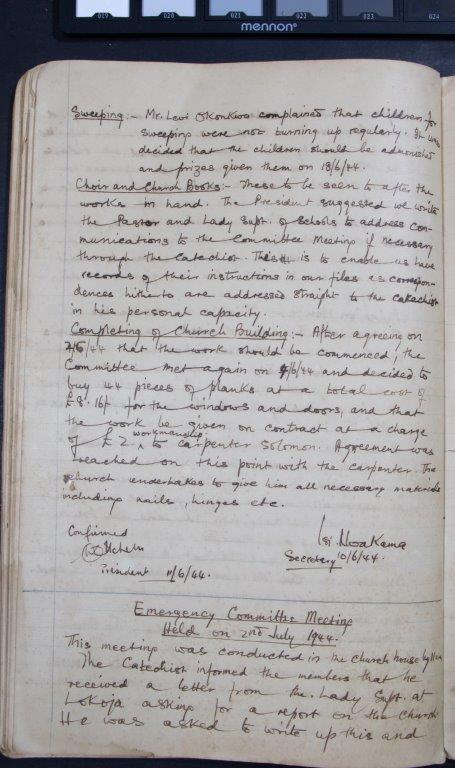 019 020 021 022 023 024
mennon
Sweeping:- Mr. Levi Okonkwo complained that children for
sweeping were not turning up regularly. It was
decided that the children should be admonished
and prizes given them on 18/6/44.
Choir and Church Books:- These to be seen to after the
works in hand. The President suggested we write
the Pastor and Lady Supt. of Schools to address com-
munications to the Committee Meeting if necessary
through the Catechist. This is to enable us have
records of their instructions in our files as correspon-
dences hitherto are addressed straight to the catechist
in his personal capacity.
Completing of Church Building:- After agreeing on
/6/44 that the work should be commenced, the
Committee met again on /6/44 and decided to
buy 44 pieces of planks at a total cost of
£8.16/- for the windows and doors, and that
the work be given on contract at a charge
of £2 workmanship to carpenter Solomon. Agreement was
reached on this point with the carpenter. The
church undertakes to give him all necessary materials
including nails, hinges etc.
Confirmed
President 11/6/44.
Nwakama
Secretary 10/6/44.
Emergency Committee Meeting
Held on 2nd July 1944.
This meeting was conducted in the church house by
The Catechist informed the members that he
received a letter from the Lady Supt. at
Lokoja asking for a report on the Church.
He was asked to write up this and